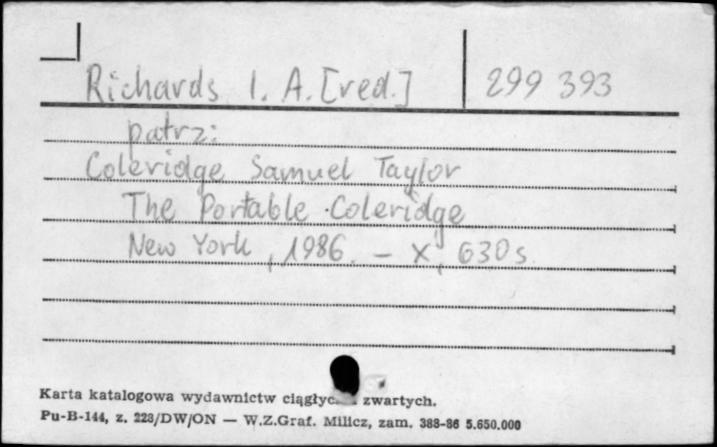 Richards I. A. [red.] 299 393
patrz:
Coleridge Samuel Taylor
The Portable Coleridge
New York, 1986. – X, 630 s.
Karta katalogowa wydawnictw zwartych.
Pu-B-144, z. 228/DW/ON — W.Z.Graf. Milicz, zam. 388-86 5.650.000